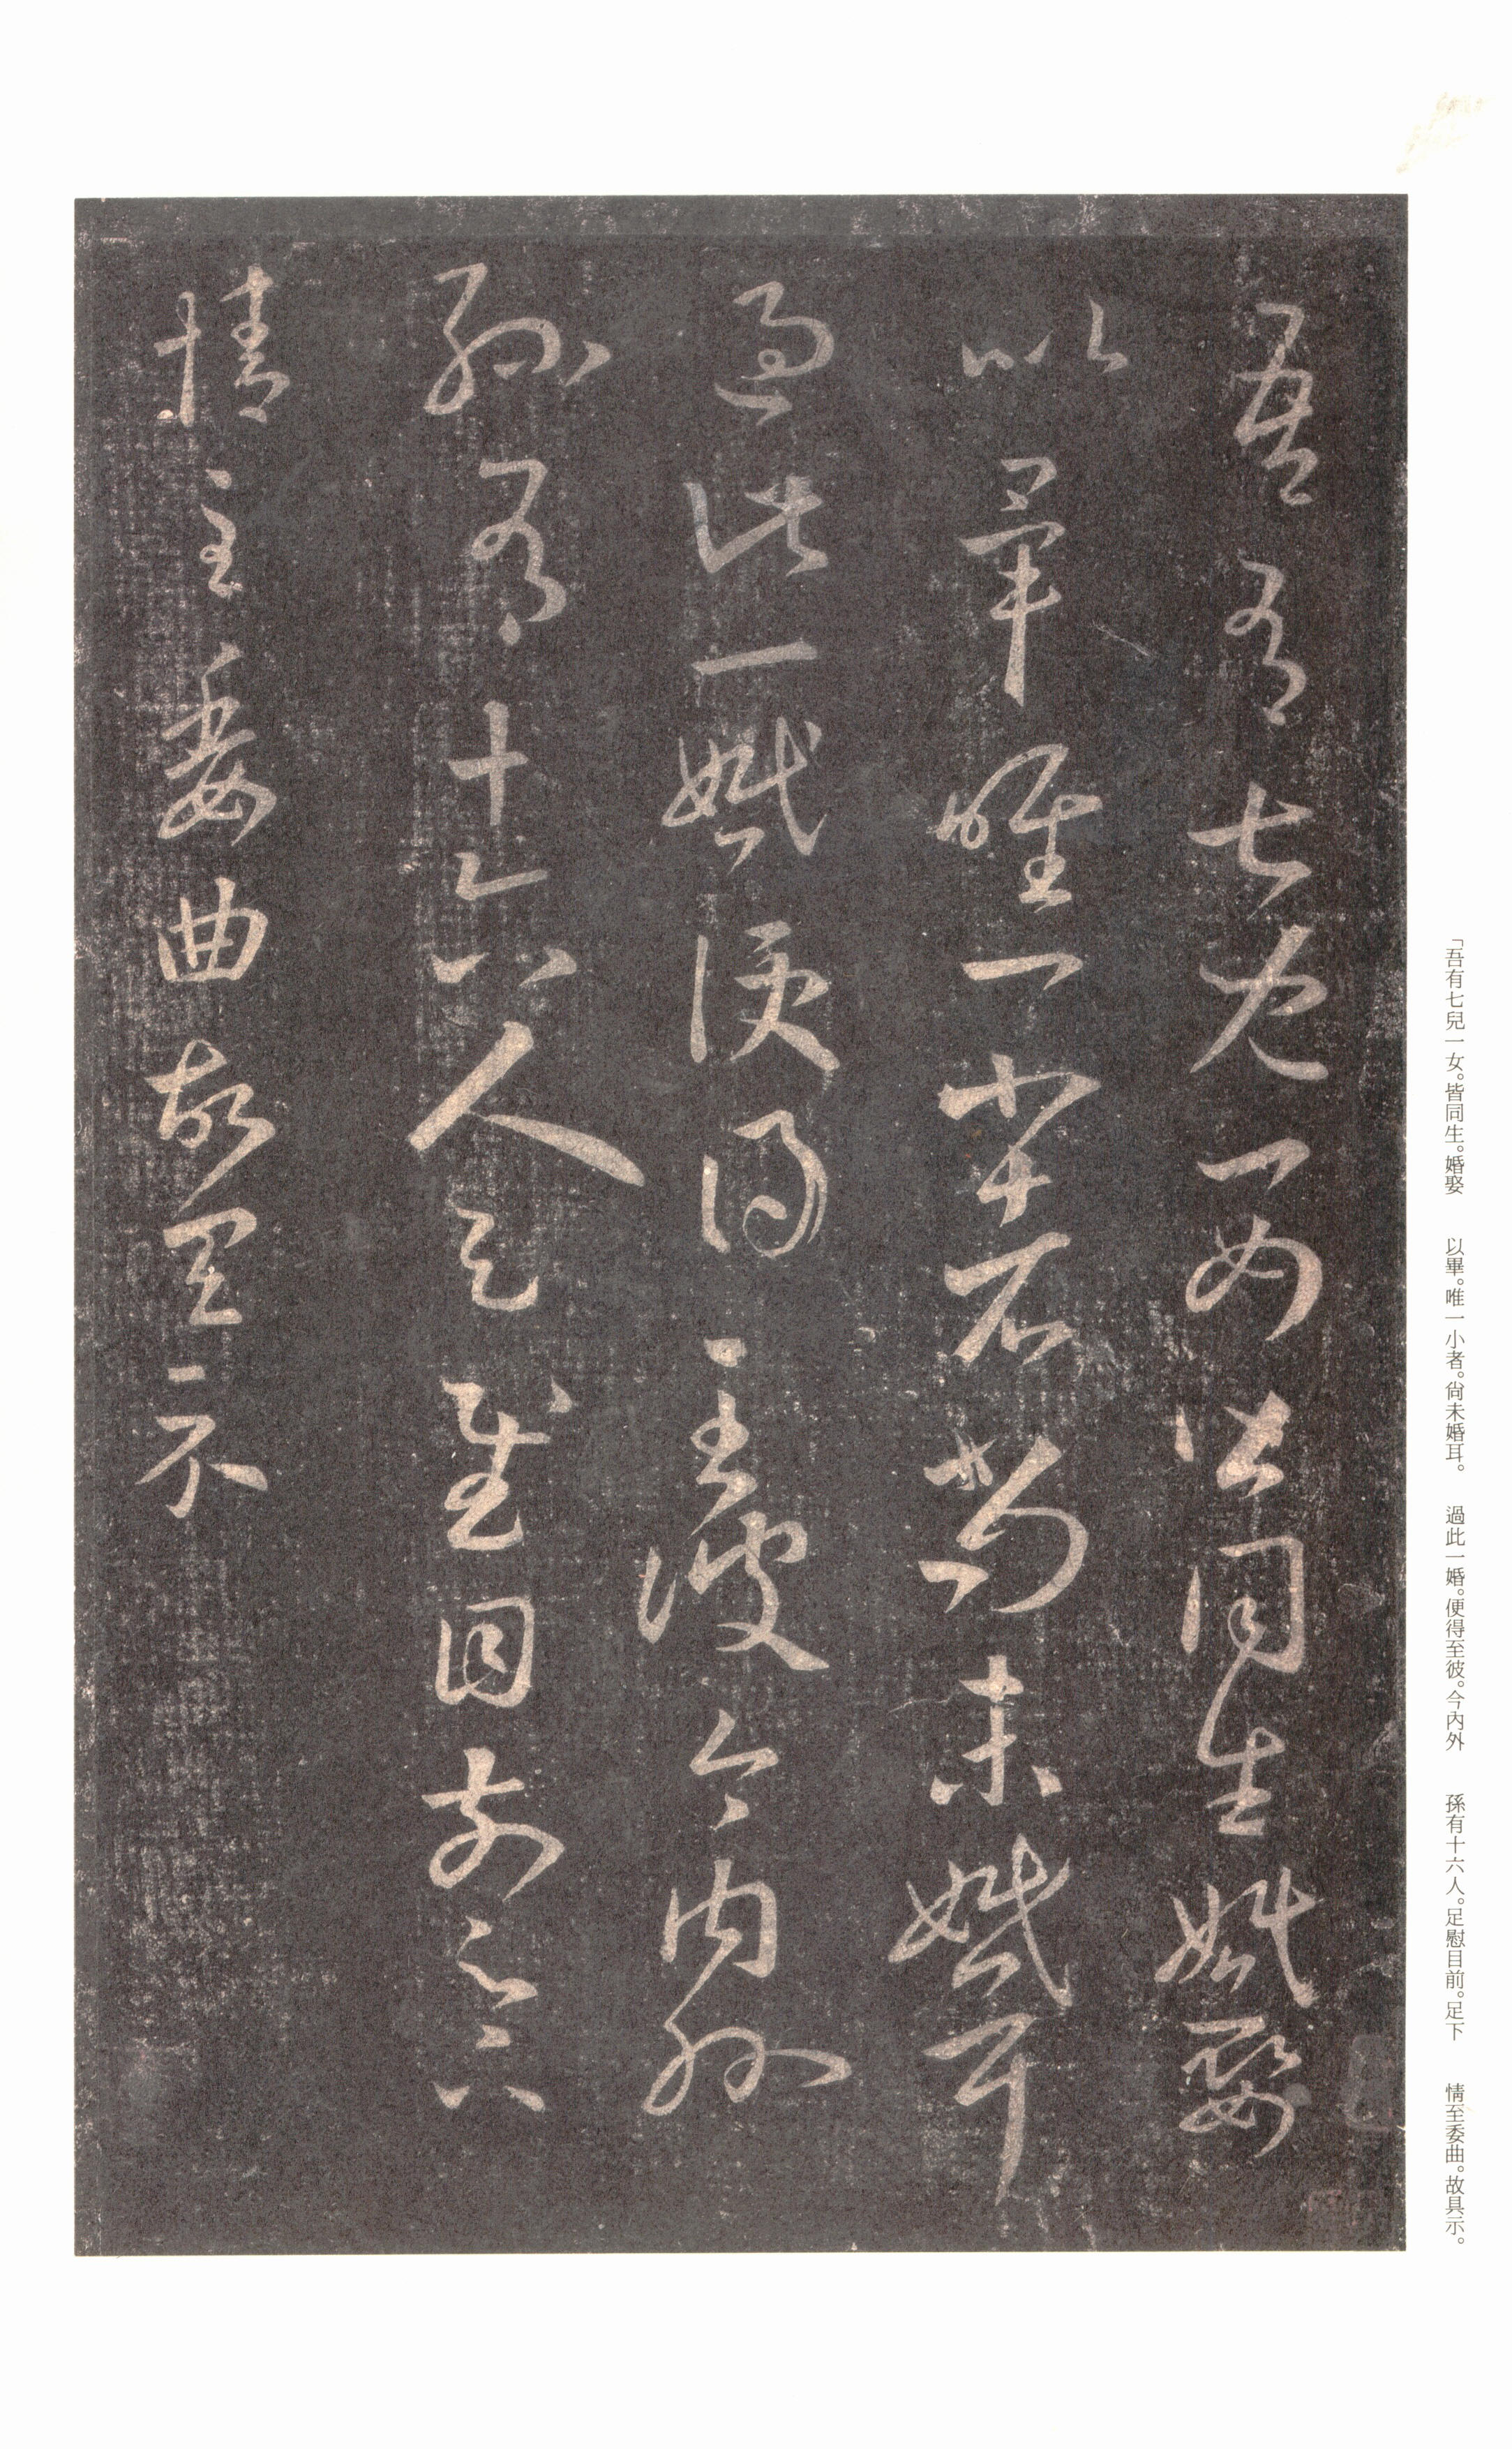 吾有七兒一女皆同生婚娶
以畢唯一小者尚未婚耳
過此一婚便得至彼今內外
孫有十六人足慰目前足下
情至委曲故具示
「吾有七兒一女。皆同生。婚娶　以畢。唯一小者。尙未婚耳。　過此一婚。便得至彼。今內外　孫有十六人。足慰目前。足下　情至委曲。故具示。